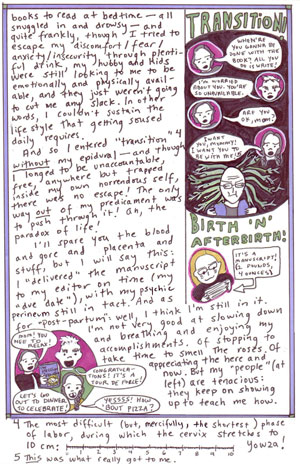 books to read at bedtime — all
snuggled in and drowsy — and
quite frankly, though I tried to
escape my discomfort/fear/
anxiety/insecurity through plenti-
ful drink, hubby and kids
were still looking to me to be
emotionally and physically avail-
able, and they just weren't going
to cut me any slack. In other
words, I couldn't sustain the
life style that getting soused
daily requires.
And so I entered "transition"4
without my epidural — and though
I longed to be unaccountable,
free, anywhere but trapped
inside my own horrendous self,
there was no escape! The only
way out of my predicament was
to push through it! Oh, the
paradox of life!
I'll spare you the blood
and gore and placenta and
stuff, but I will say this:
I "delivered" the manuscript
to my editor on time (my
"due date"), with my psychic
perineum still in tact. And as
for "post-partum": well, I think I'm still in it.
I'm not very good at slowing down
and breathing and enjoying my
accomplishments. Of stopping to
take time to smell the roses. Of
appreciating the here and
now. But my "people" (at
left) are tenacious:
they keep on showing
up to teach me how.
TRANSITION!
WHEN'RE
YOU GONNA BE
DONE WITH THE
BOOK? ALL YOU
DO IS WRITE!
I'M WORRIED
ABOUT YOU. YOU'RE
SO UNAVAILABLE.
ART YES
OF, MOM.
I WANT
YOU, MOMMY!
I WANT YOU TO
BE WITH ME!
BIRTH 'N'
AFTERBIRTH!
IT'S A
MANUSCRIPT!
MOM! YOU
NEED TO RELAX!
CONGRATULA-
TIONS! IT'S A
TOUR DE FORCE!
LET'S GO
OUT TO DINNER
TO CELEBRATE!
YESSSS! HOW
'BOUT PIZZA?
4 The most difficult (but, mercifully, the shortest) phase
of labor, during which the cervix stretches to
10 cm: Yowza!
5 This was what really got to me.